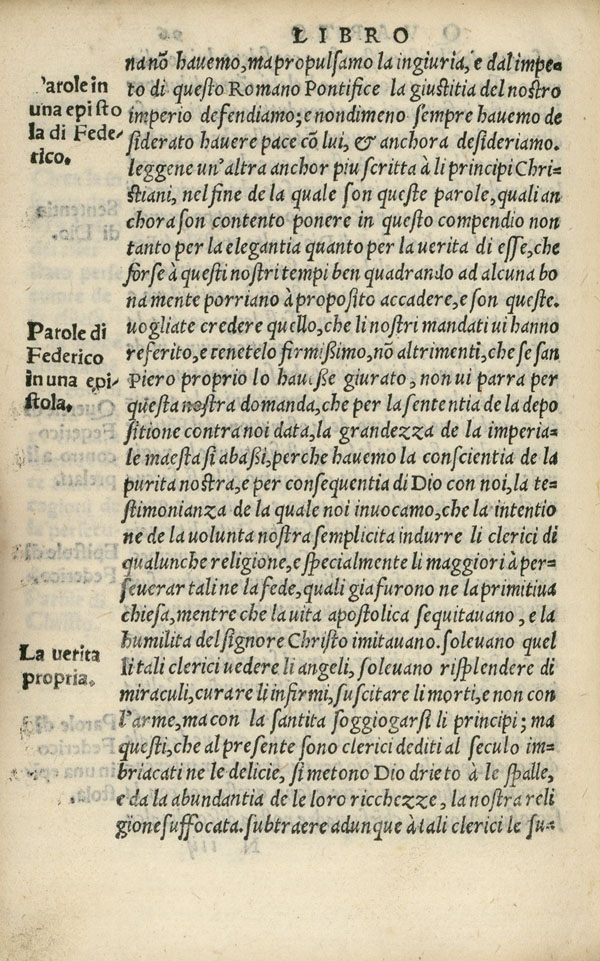 LIBRO
Parole in
una episto
la di Fede-
rico.
nanõ havemo, ma propulsamo la ingiuria, e dal impe-
to di questo Romano Pontifice la giustitia del nostro
imperio defendiamo; e nondimeno sempre havemo de
siderato havere pace cõ lui, & anchora desideriamo.
leggene un'altra anchor piu scritta à li principi Chri-
stiani, nel fine de la quale son queste parole, quali an
chora son contento ponere in questo compendio non
tanto per la elegantia quanto per la verita di esse, che
forse à questi nostri tempi ben quadrando ad alcuna bo
na mente porriano à proposito accadere, e son queste.
Parole di
Federico
in una epi-
stola.
uogliate credere quello, che li nostri mandati ui hanno
referito, e tenetelo firmißimo, nõ altrimenti, che se san
Piero proprio lo havesse giurato, non ui parra per
questa nostra domanda, che per la sententia de la depo
sitione contra noi data, la grandezza de la imperia-
le maesta si abaßi, perche havemo la conscientia de la
purita nostra, e per consequentia di Dio con noi, la te-
stimonianza de la quale noi invocamo, che la intentio
ne de la uolunta nostra semplicita indurre li clerici di
qualunche religione, e specialmente li maggiori à per-
severar tali ne la fede, quali gia furono ne la primitiva
chiesa, mentre che la uita apostolica sequitavano, e la
humilita del signore Christo imitavano. solevano quel
La verita
propria.
li tali clerici vedere li angeli, solevano risplendere di
miraculi, curare li infirmi, suscitare li morti, e non con
l'arme, ma con la santita soggiogarsi li principi; ma
questi, che al presente sono clerici dediti al seculo im-
briacati ne le delicie, si metono Dio drieto à le spalle,
e da la abundantia de le loro ricchezze, la nostra reli
gione suffocata. subtraere adunque à tali clerici le su-